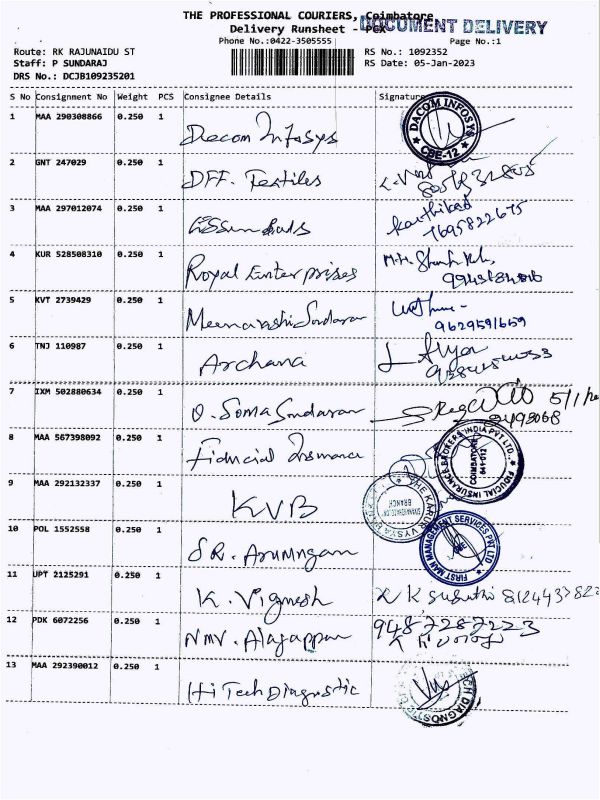 THE PROFESSIONAL COURIERS, Coimbatore
DOCUMENT DELIVERY
Delivery Runsheet - PCX
Phone No.:0422-3505555
Page No.:1
Route: RK RAJUNAIDU ST
RS No.: 1092352
Staff: P SUNDARAJ
RS Date: 05-Jan-2023
DRS No.: DCJB109235201
S No Consignment No Weight PCS Consignee Details Signature
1 MAA 290308866 0.250 1 Dacom Infosys
DACOM INFOSYS CBE-12
2 GNT 247029 0.250 1 DFF. Textiles
3 MAA 297012074 0.250 1
7695822675
4 KUR 528508310 0.250 1 Royal Enterprises
5 KVT 2739429 0.250 1 Meenakshi Sundaram
9629591659
6 TNJ 110987 0.250 1 Archana
7 IXM 502880634 0.250 1 O. Soma Sundaram
8 MAA 567398092 0.250 1 Fiducial Insurance
FIDUCIAL INSURANCE BROKERS INDIA PVT LTD.,
COIMBATORE
641-012
9 MAA 292132337 0.250 1 KVB
THE KARUR VYSYA BANK
BRANCH
10 POL 1552558 0.250 1 SR. Arumugam
FIRST MAN MANAGEMENT SERVICES PVT LTD
11 UPT 2125291 0.250 1 K. Vignesh
12 PDK 6072256 0.250 1 NMV. Alagappan
9487287223
13 MAA 292390012 0.250 1 Hi Tech Diagnostic